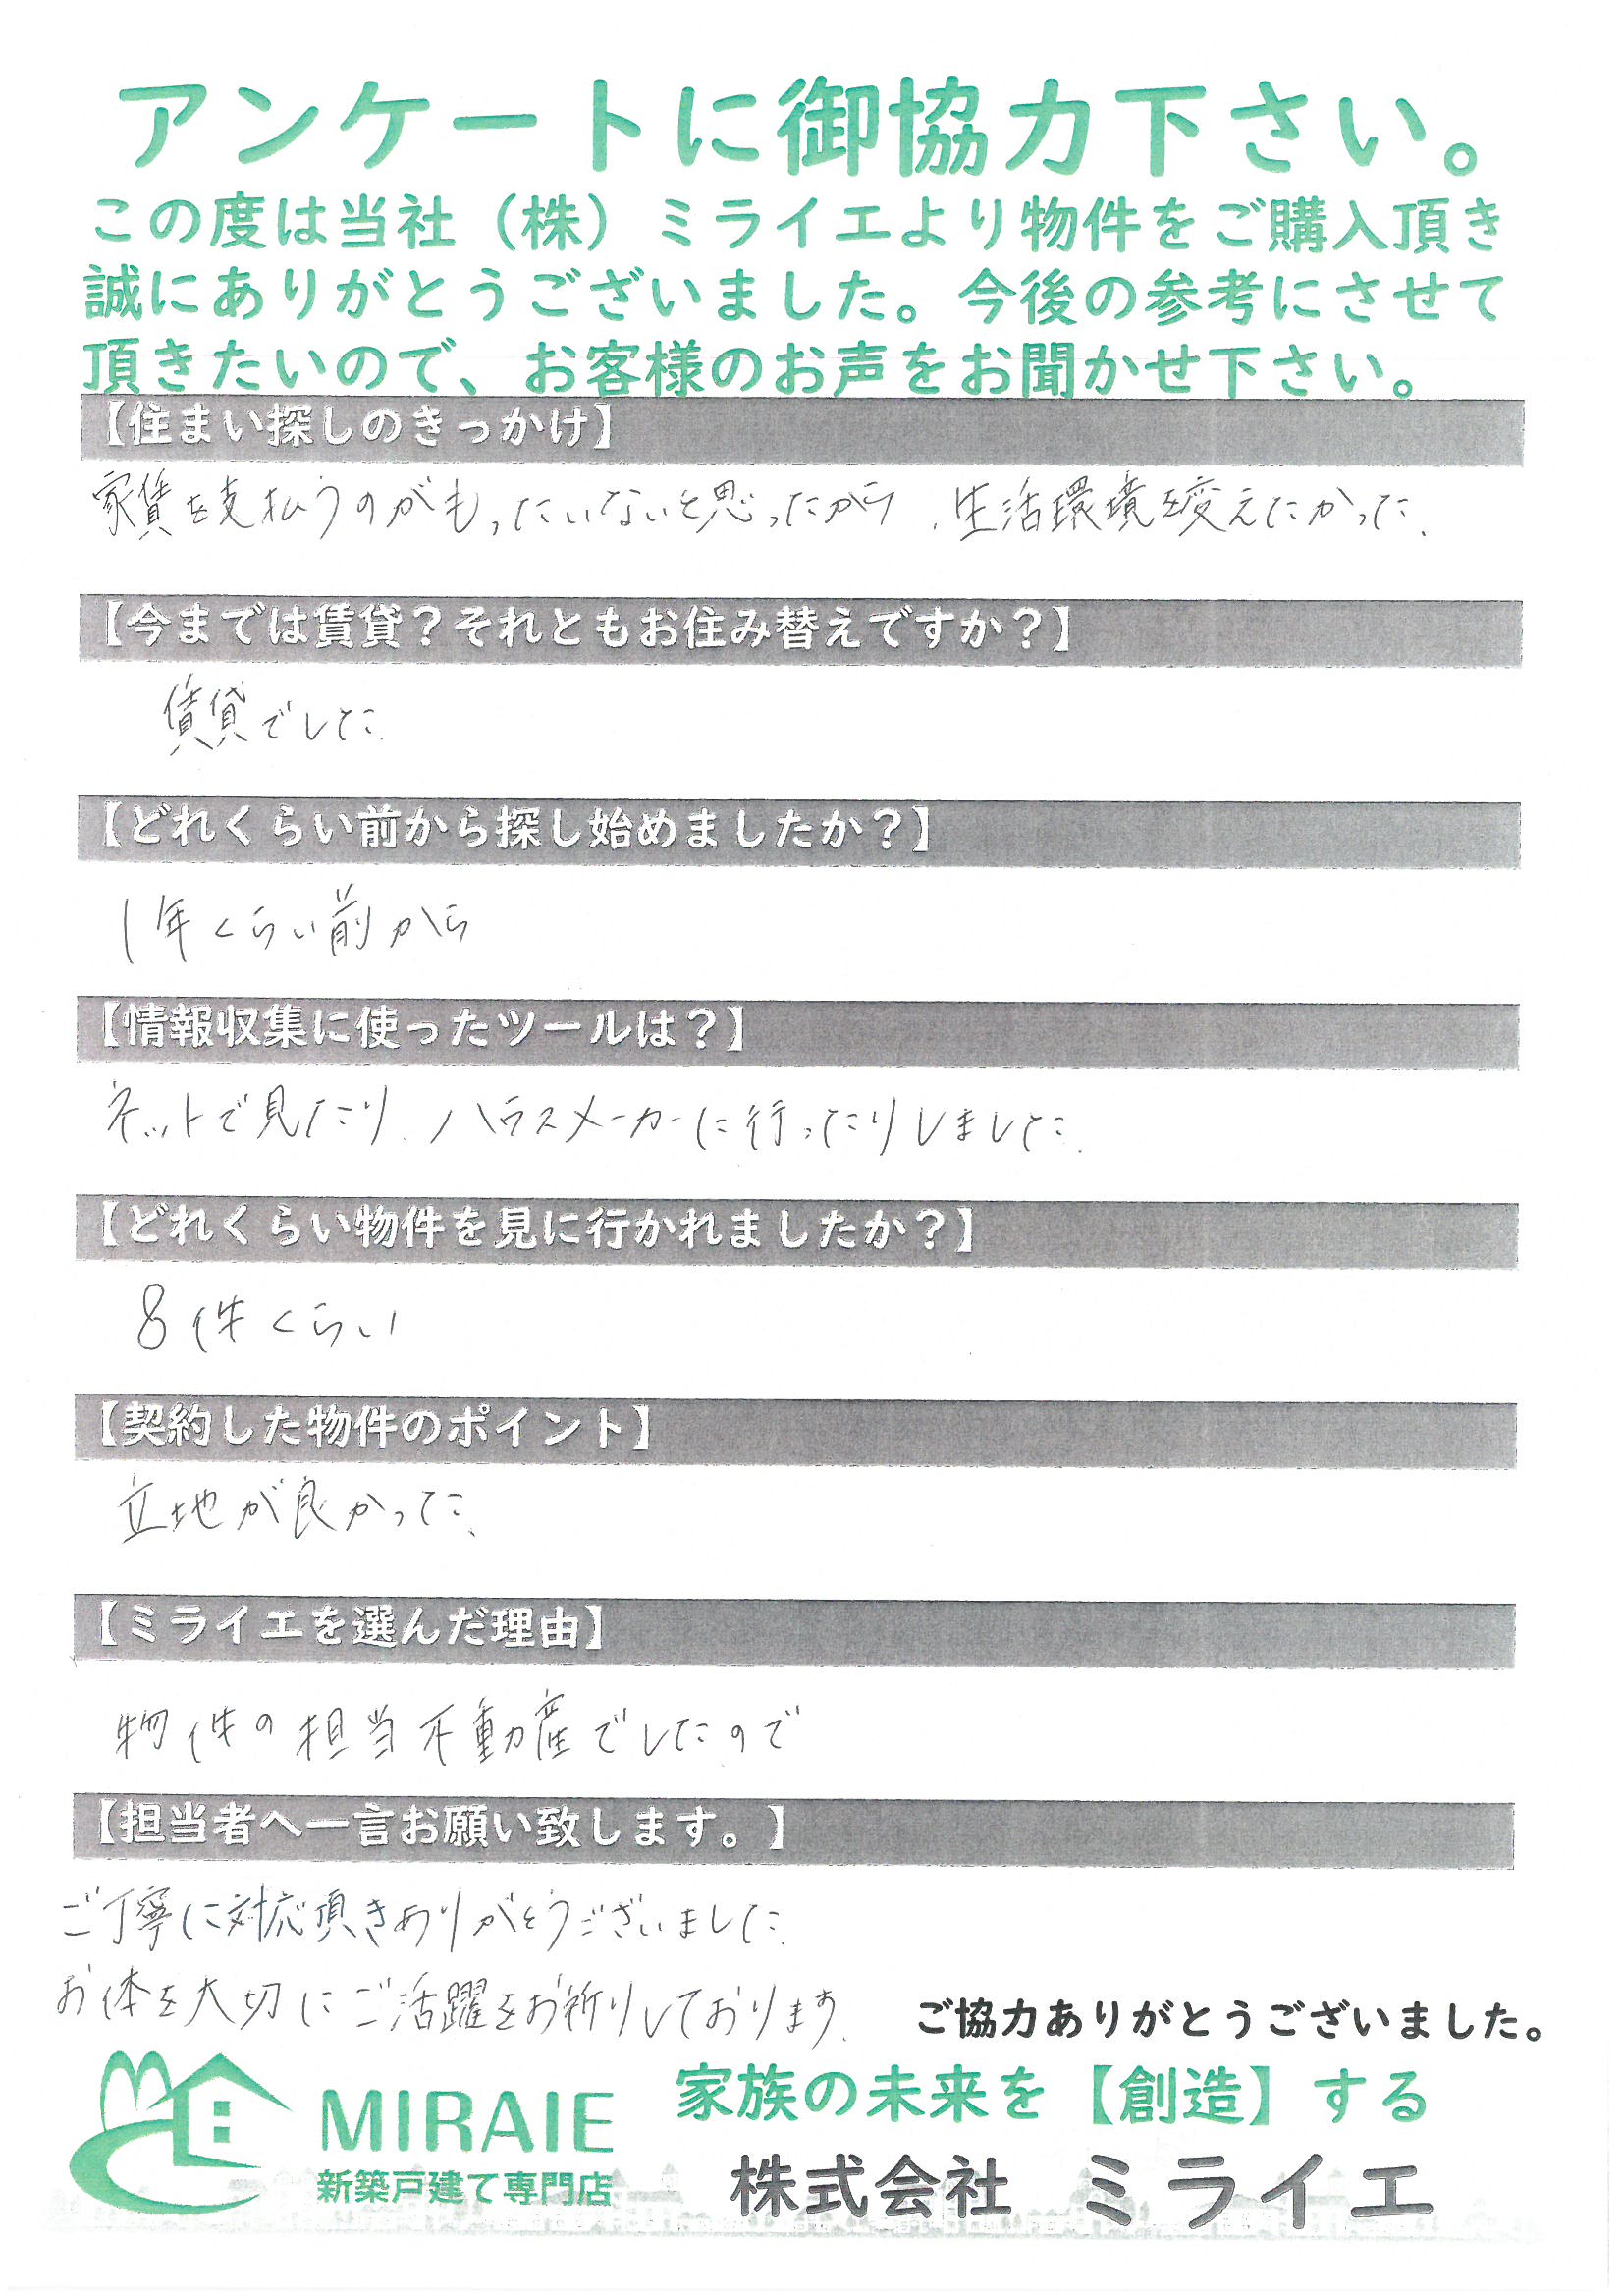 アンケートに御協力下さい。
この度は当社（株）ミライエより物件をご購入頂き
誠にありがとうございました。今後の参考にさせて
頂きたいので、お客様のお声をお聞かせ下さい。
【住まい探しのきっかけ】
家賃を支払うのがもったいないと思ったから、生活環境を変えたかった。
【今までは賃貸？それともお住み替えですか？】
賃貸でした
【どれくらい前から探し始めましたか？】
1年くらい前から
【情報収集に使ったツールは？】
ネットで見たり、ハウスメーカーに行ったりしました。
【どれくらい物件を見に行かれましたか？】
8件くらい
【契約した物件のポイント】
立地が良かった、
【ミライエを選んだ理由】
物件の担当不動産でしたので
【担当者へ一言お願い致します。】
ご丁寧に対応頂きありがとうございました
お体を大切にご活躍をお祈りしております。
ご協力ありがとうございました。
MIRAIE
新築戸建て専門店
家族の未来を【創造】する
株式会社 ミライエ